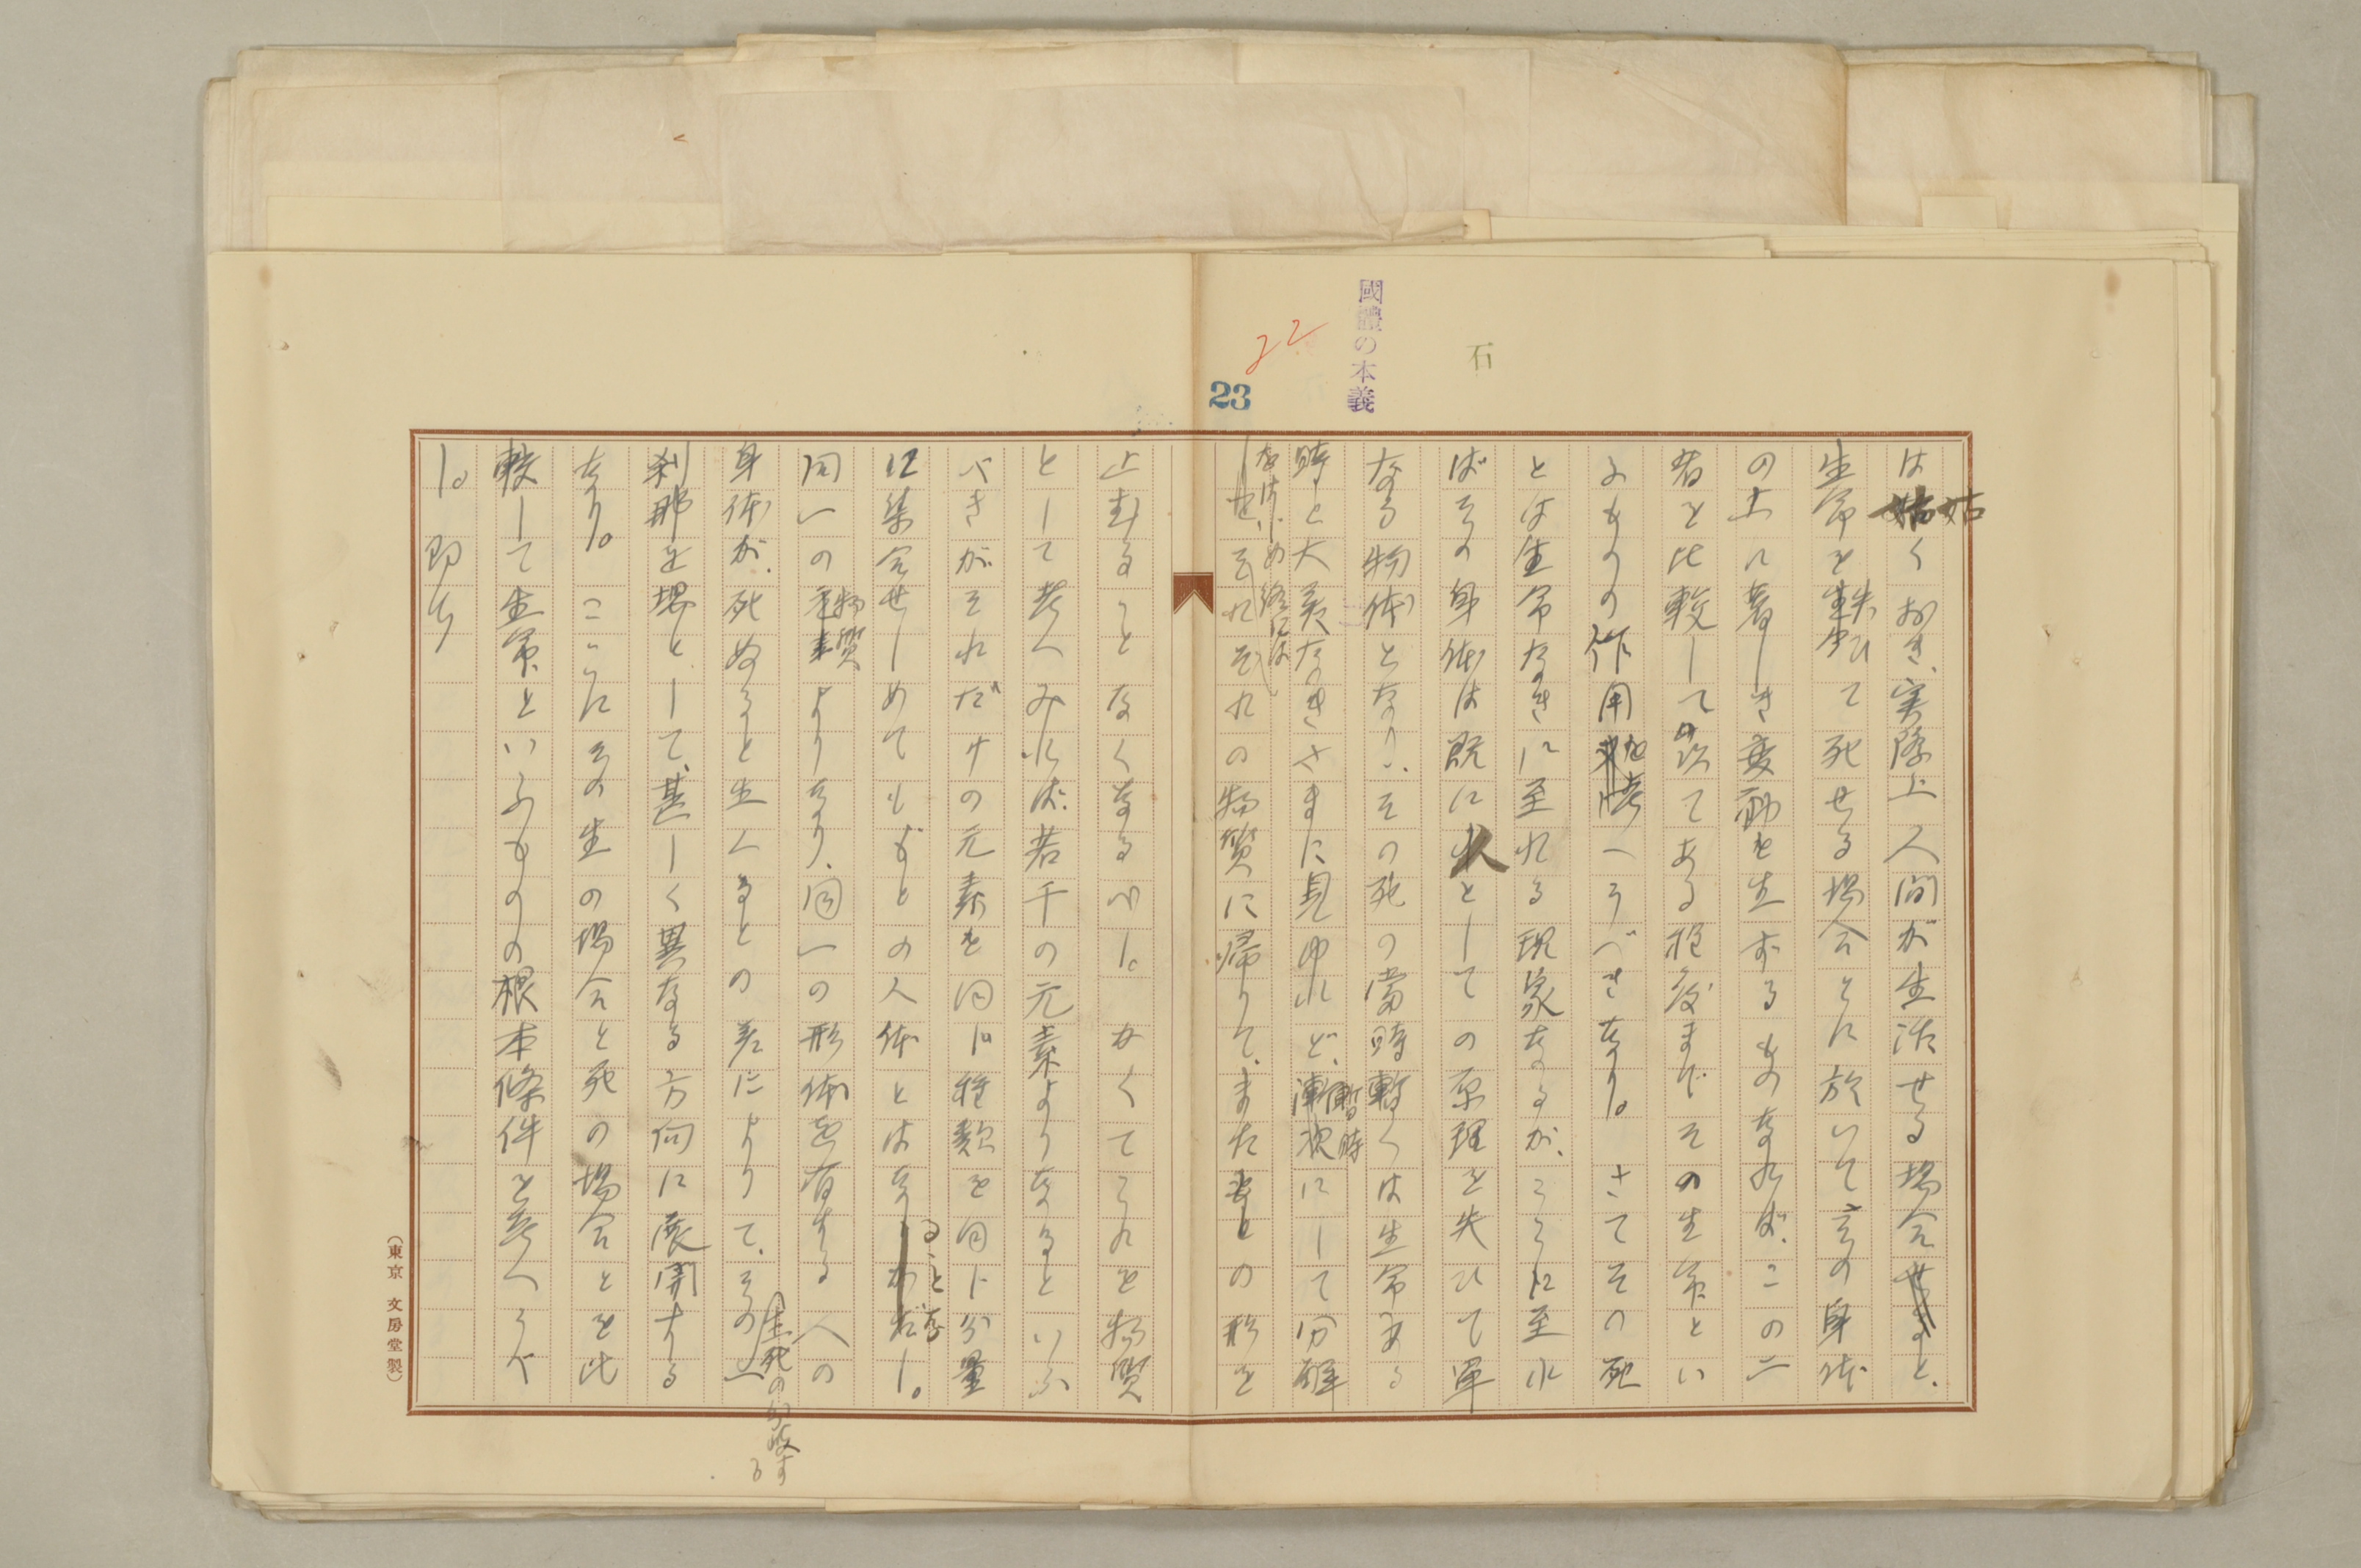 國體の本義
石
22
23
は姑くおき、実際上人間が生活せる場合と、
生命を失ひて死せる場合とに於いてその身体
の上に著しき変動を生ずるものなれば、この二
者を比較して以てある程度までその生命とい
ふものの作用を考へうべきなり。さてその死
とは生命なきに至れる現象なるが、ここに至れ
ばその身体は既に人としての原理を失ひて単
なる物体となり、その死の当時暫くは生命ある
時と大差なきさまに見ゆれど、暫時にして分解
なしはじめ終には
それぞれの物質に帰りて、またもとの形を
止むることなくなるべし。かくてこれを物質
として考へみれば、若干の元素よりなるといふ
べきがそれだけの元素を同じ種類を同じ分量
に集合せしめてももとの人体とはなることなし。
同一の物質よりなり、同一の形体を有する人の
身体が、死ぬると生くるとの差によりて、その
生死の分岐する
刹那を堺として、甚しく異なる方向に展開する
なり。ここにその生の場合と死の場合とを比
較して生命といふものの根本條件を考へうべ
し。即ち
(東京 文房堂製)